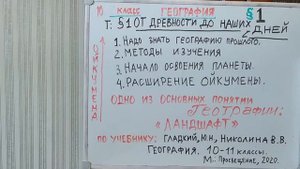 10 КЛАСС ГЕОГРАФИЯ § 1
Т: §1 ОТ ДРЕВНОСТИ ДО НАШИХ ДНЕЙ
1. НАДО ЗНАТЬ ГЕОГРАФИЮ ПРОШЛОГО.
2. МЕТОДЫ ИЗУЧЕНИЯ
3. НАЧАЛО ОСВОЕНИЯ ПЛАНЕТЫ.
4. РАСШИРЕНИЕ ОЙКУМЕНЫ.
ОЙКУМЕНА
ОДНО ИЗ ОСНОВНЫХ ПОНЯТИИ
ГЕОГРАФИИ:
"ЛАНДШАФТ"
ПО УЧЕБНИКУ: ГЛАДКИЙ, Ю.Н., НИКОЛИНА В.В.
ГЕОГРАФИЯ. 10-11 КЛАССЫ.
М. ПРОСВЕЩЕНИЕ, 2020.